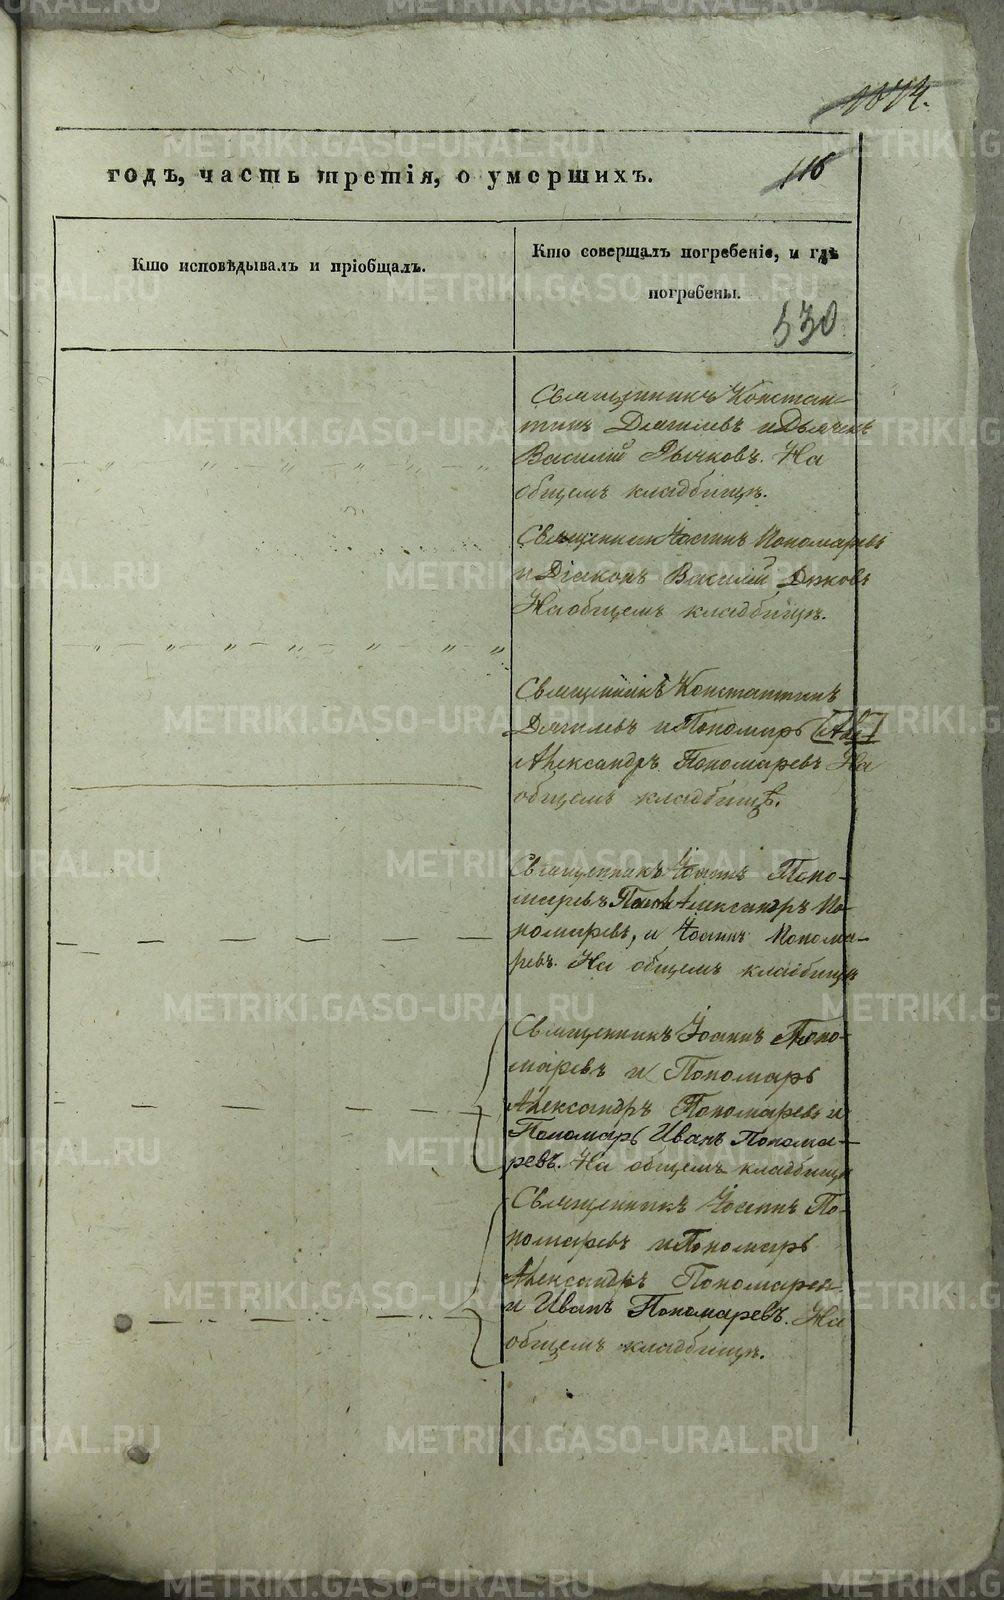 годъ, часть третія, о умершихъ.
116
Кто исповѣдывалъ и пріобщалъ.
Кто совершалъ погребеніе, и гдѣ
погребены.
530
Священникъ Констан-
тинъ Дягилевъ и Дьячекъ
Василій Рычковъ. На
общемъ кладбищѣ.
Священникъ Іоаннъ Пономаревъ
и Діаконъ Василій
На общемъ кладбищѣ.
Священникъ Константинъ
Дягилевъ и Пономарь
Александръ Пономаревъ На
общемъ кладбищѣ.
Священникъ Іоаннъ Поно-
маревъ Александръ По-
номаревъ, и Іоаннъ Понома-
ревъ. На общемъ кладбищѣ
Священникъ Іоаннъ Поно-
маревъ и Пономарь
Александръ Пономаревъ и
Пономарь Иванъ Понома-
ревъ. На общемъ кладбищѣ
Священникъ Іоаннъ По-
номаревъ и Пономарь
Александръ Пономарев
и Иванъ Пономаревъ. На
общемъ кладбищѣ.
METRIKI.GASO-URAL.RU